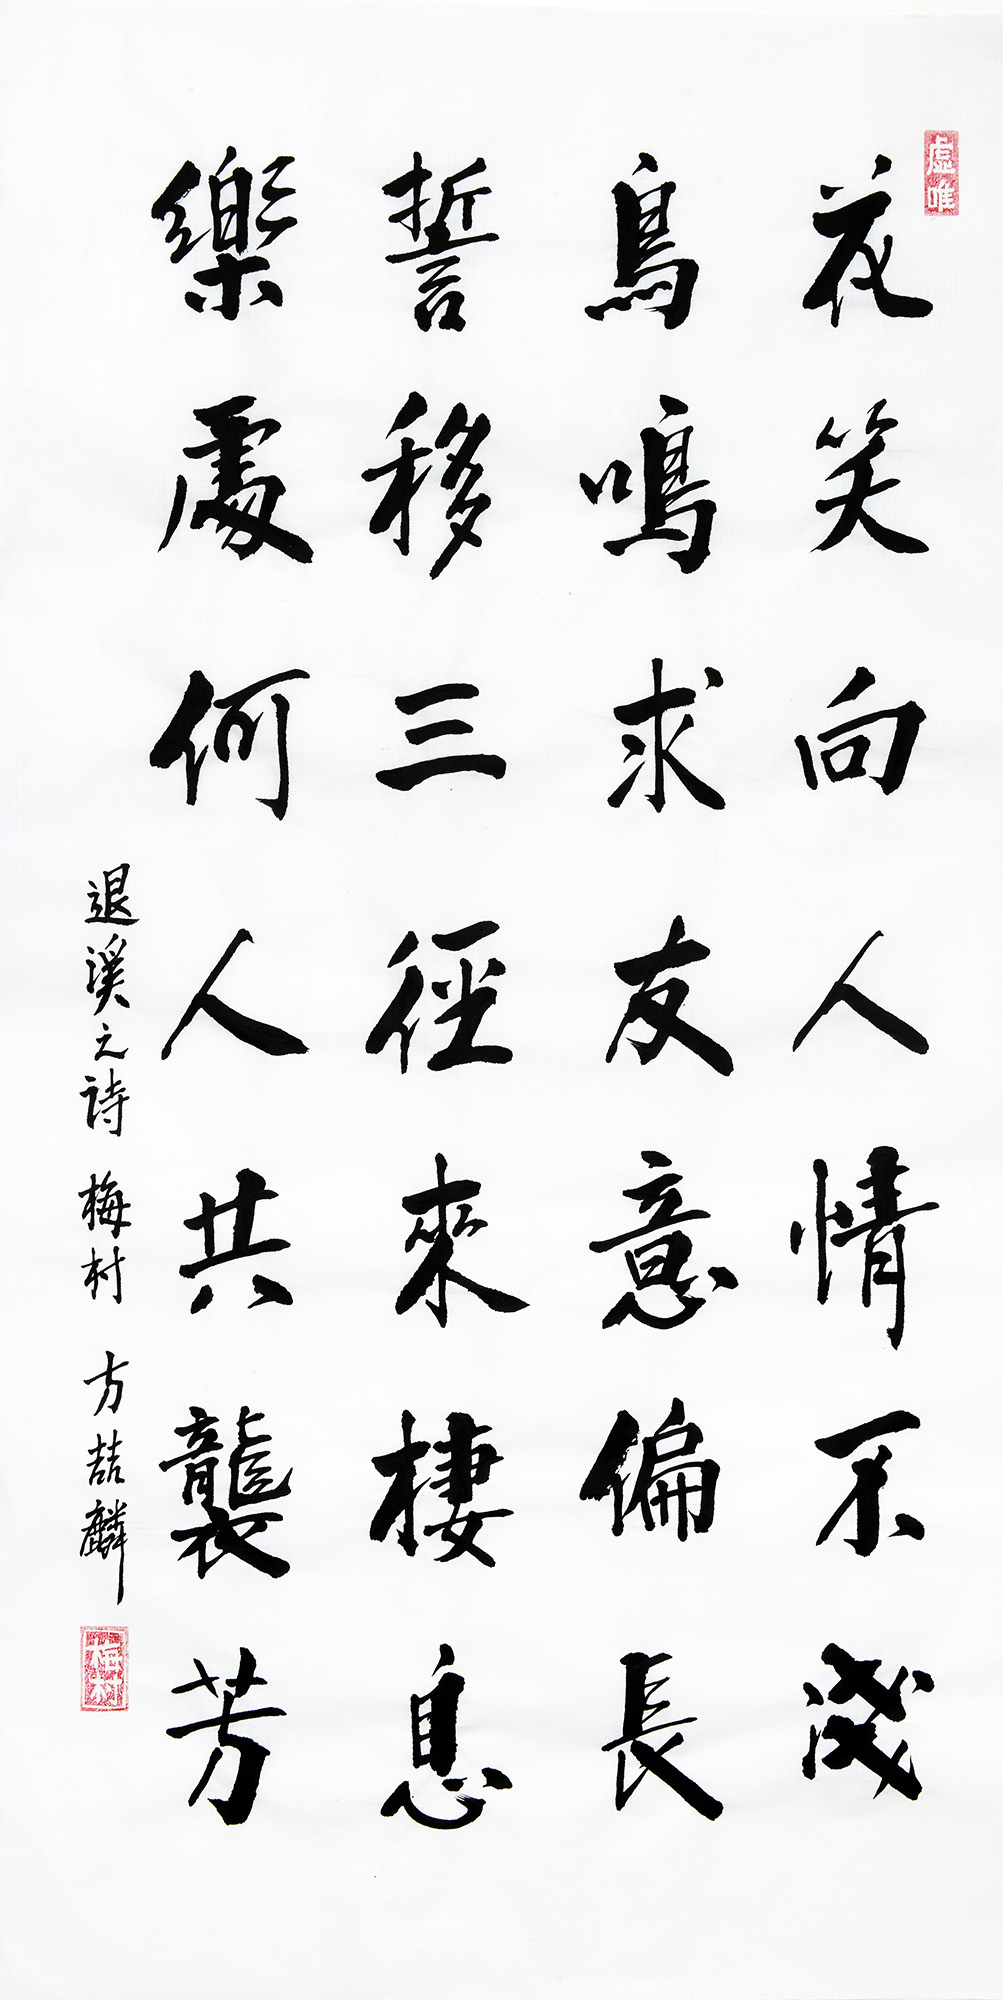 花笑向人情不淺
鳥鳴求友意偏長
誓移三徑來棲息
樂處何人共襲芳
退溪之詩 梅村 方喆麟
梅村